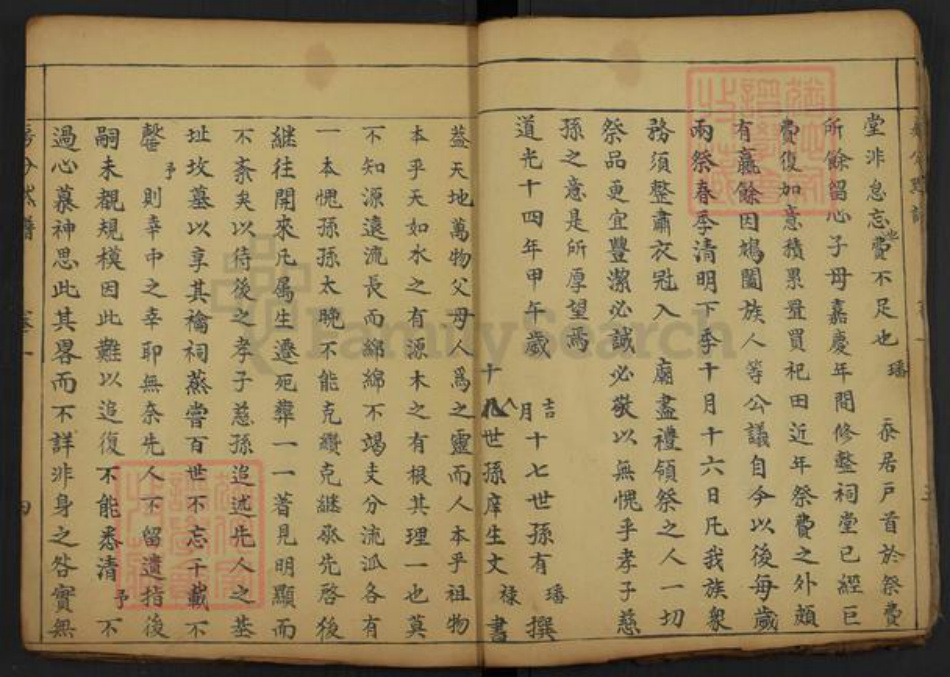 堂非怠忘費也不足也 璠 忝居戶首於祭費
所餘留心子母嘉慶年間修整祠堂已經巨
費復加意積累疊買祀田近年祭費之外頗
有贏餘因鳩闔族人等公議自今以後每歲
兩祭春季清明下季十月十六日凡我族衆
務須整肅衣冠入 廟盡禮領祭之人一切
祭品更宜豐潔必誠必敬以無愧乎孝子慈
孫之意是所厚望焉
道光十四年甲午歲 八月吉 十七世孫有璠撰
十八世孫庠生文祿書
蓋天地萬物父母人爲之靈而人本乎祖物
本乎天如水之有源木之有根其理一也莫
不知源遠流長而綿綿不竭支分流派各有
一本愧孫孫太晩不能克纘克繼承先啓後
繼往開來凡属生遷死葬一一著見明顯而
不紊矣以待後之孝子慈孫追述先人之基
址坟墓以享其禴祠蒸嘗百世不忘千載不
罄予則幸中之幸耶無奈先人不留遺指後
嗣未覩規模因此難以追復不能悉清予不
過心慕神思此其畧而不詳非身之咎實無
FamilySearch